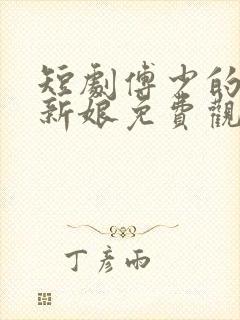 短劇傅少的
新娘免費觀
丁彥雨